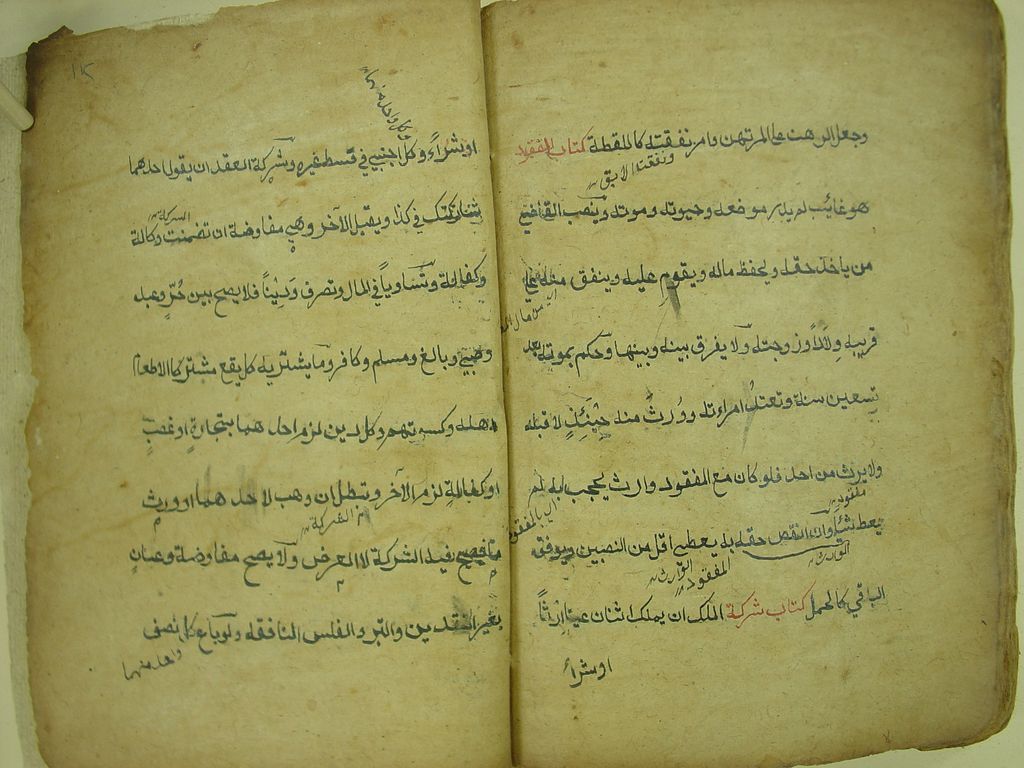 وجعل الرهن على المرتهن وامر نفقته كاللقطة كتاب المفقود
ونفقت الابق
هو غايب لم يدر موضعه وحيوته وموته وينصب القاضي
من ياخذ حقه ويحفظ ماله ويقوم عليه وينفق منه على
قريبه ولاداً وزوجته ولا يفرق بينه وبينها وحكم بموته بعد
تسعين سنة وتعتد امراءته وورث منه حينئذ لا قبله
ولا يرث من احد فلو كان مع المفقود وارث يحجب به لم
مفقود
يعط شئا وان انتقص حقه به يعطى اقل من النصبين ويوقف
الوارث
المفقود الوارث
الباقي كالحمل كتاب شركة الملك ان يملك اثنان عينا ارثاً
او شراً
١١٥
كل واحد منهما
او شراءً وكل اجنبي في قسط غيره وشركة العقد ان يقول احدهما
الشركة
شاركتك في كذا ويقبل الآخر وهي مفاوضة ان تضمنت وكالة
وكفالة وتساوياً في المال وتصرف وديناً فلا يصح بين حرّ وعبد
وصبي وبالغ ومسلم وكافر وما يشتريه كل يقع مشتركا الا طعام
اهله وكسوتهم وكل دين لزم احدهما بتجارة او غصب
او كفالة لزم الآخر وتبطل ان وهب لاحدهما او ورث
الشركة
ما يصح فيه الشركة لا العرض ولا يصح مفاوضة وعنان
بغير النقدين والتبر والفلس النافقة ولو باع كل نصف
واحد منهما